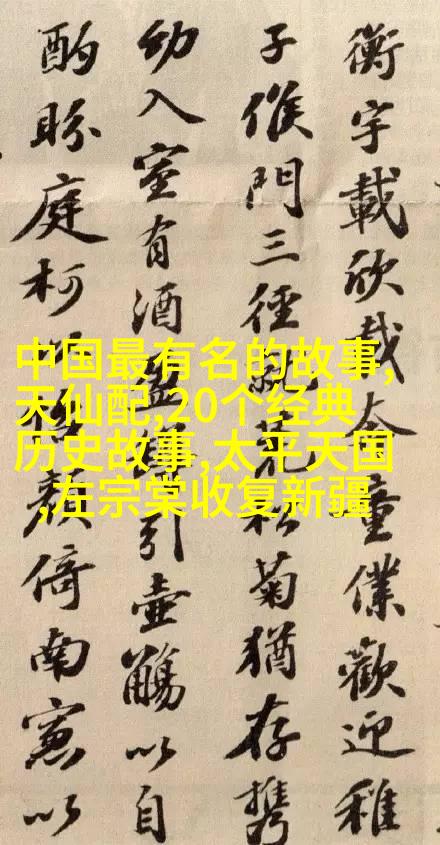 衡宇載欣載奔童僕歡迎稚
子候門三徑就荒松菊猶存携
幼入室有酒盈樽引壺觴以自
酌眄庭柯以怡顏倚南窓以
中国最有名的故事,
天仙配,20个经典
历史故事,太平天国
,左宗棠收复新疆